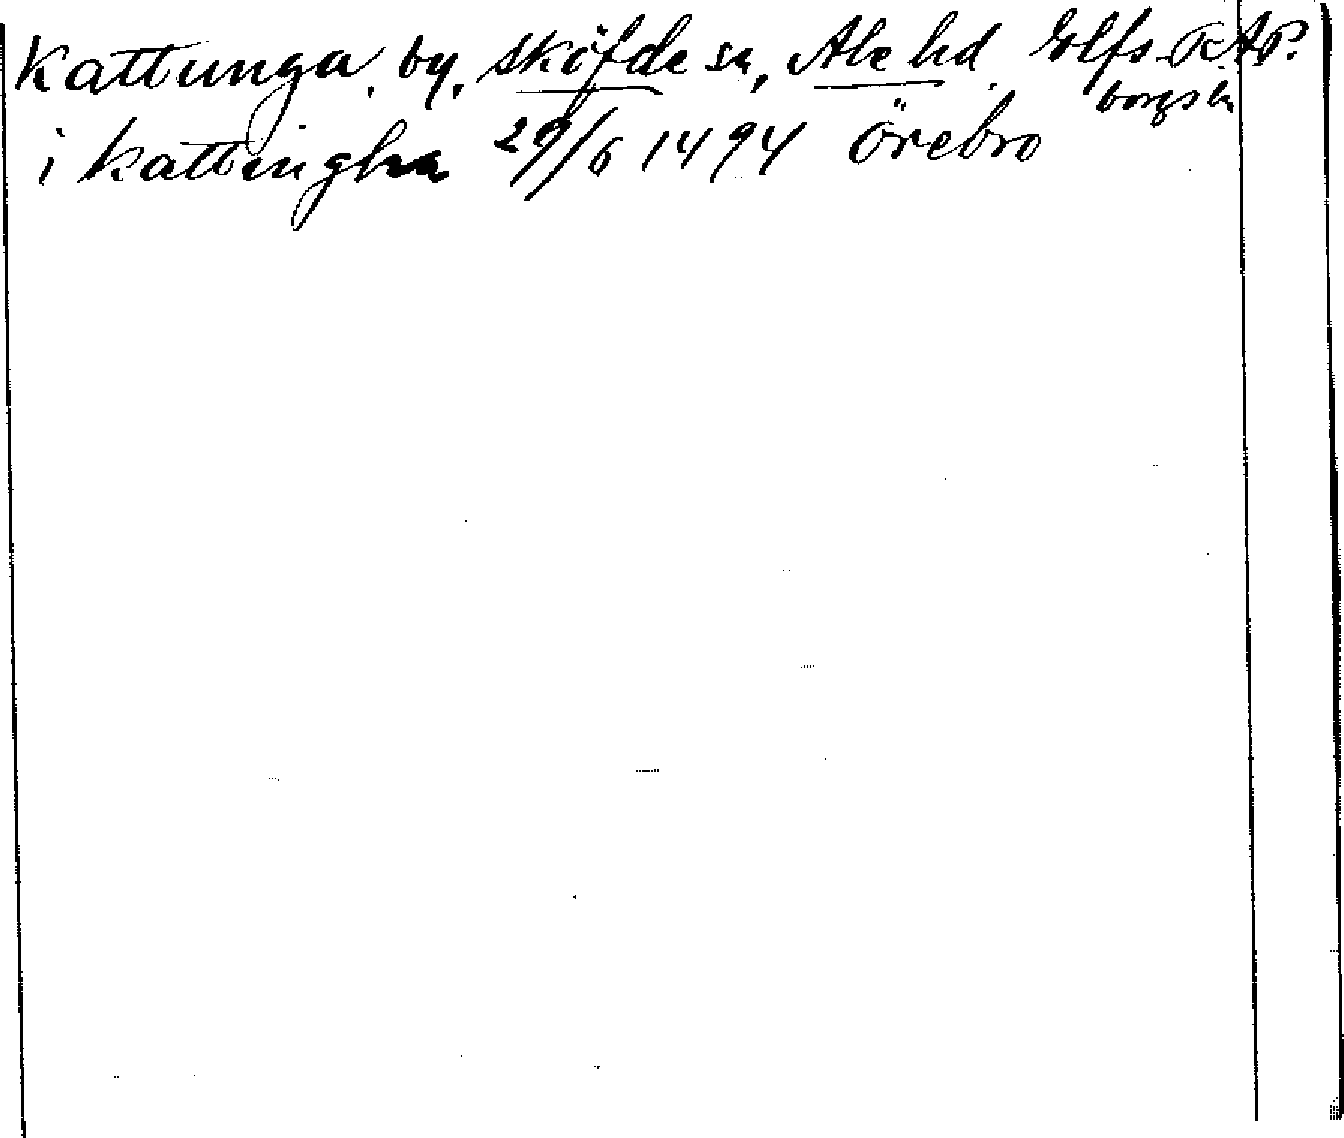 Kattunga, by, Sköfde sn, Ale hd. Elfs- R.A.P.
borgs län
i kattingha 29/6 1494 Örebro